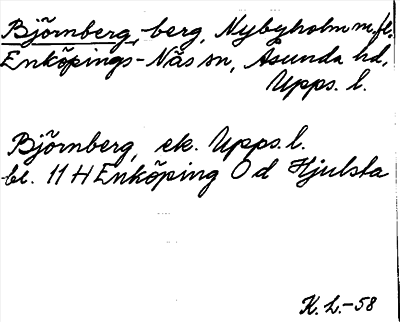 Björnberg, -berg, Nybyholm m.fl.
Enköpings-Näs sn, Åsunda hd,
Upps. l.
Björnberg, ek. Upps. l.
bl. 11 H Enköping O d Hjulsta
K. L.-58